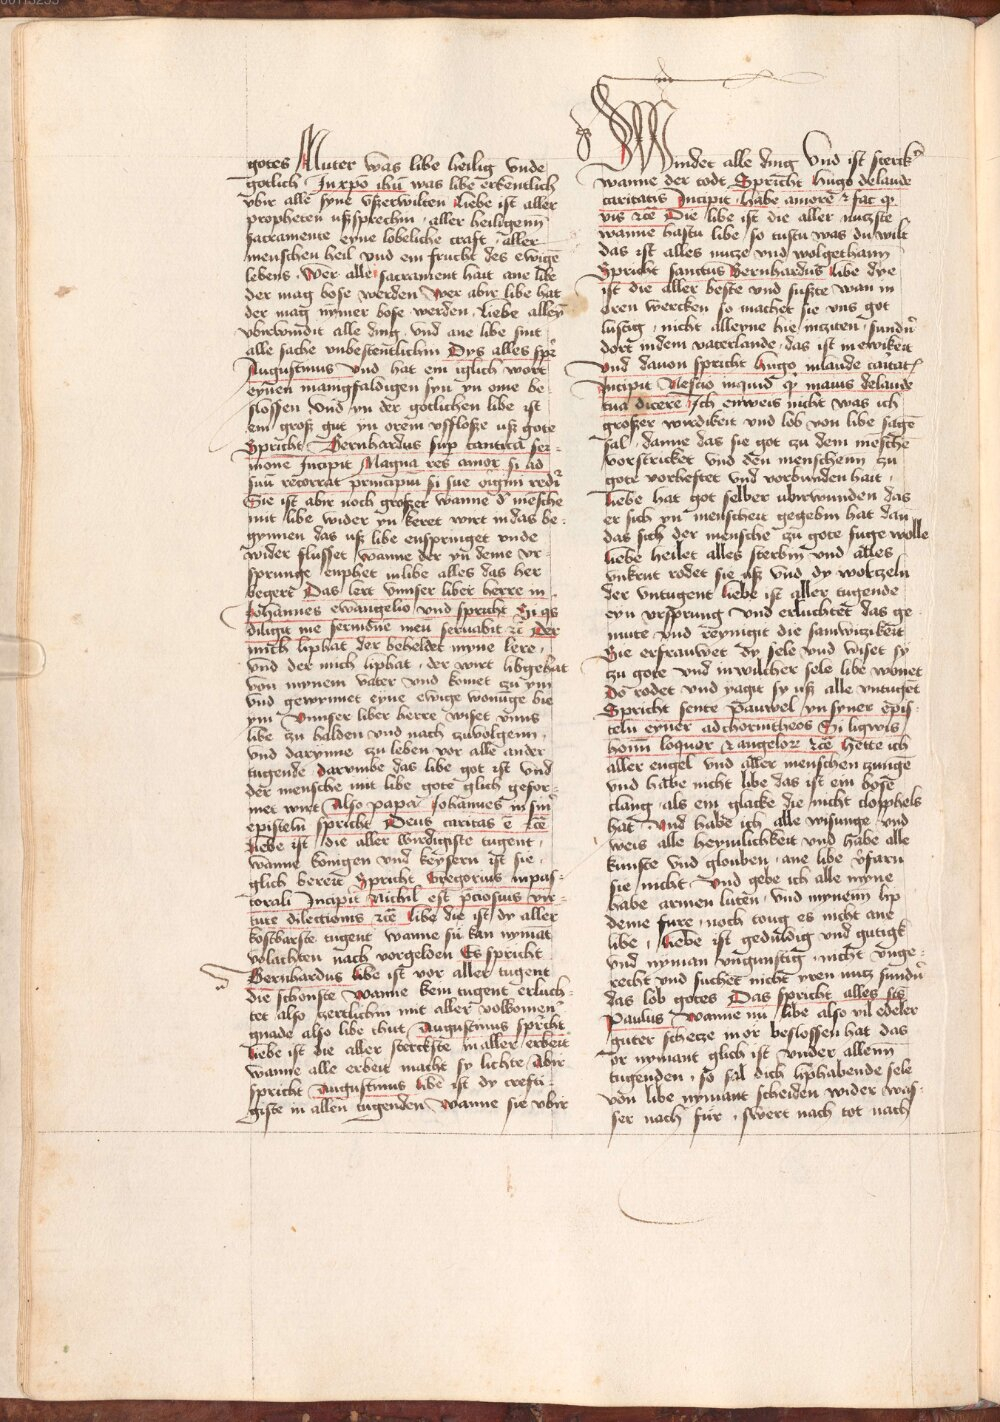 gotes Muter was libe heilig vnde
gotlich In xpo ihu was libe erkentlich
vbir alle syne vßerwilten Liebe ist aller
propheten ußsprechin, aller heiligenn
sacramente eyne lobeliche craft, aller
menschen heil vnd ein frucht des ewigē
lebens, Wer alle sacrament hait ane libe
der mag bose werden Wer abir libe hat
der mag nymer bose werden, Liebe alleyn
vbirwindit alle ding, vnd ane libe sint
alle sache vnbestentlichin Dys alles spr
Augustinus vnd hat ein iglich wort
eynen manigfaldigen syn yn ome be-
slossen vnd yn der gotlichen libe ist
ein groß gut yn orem vßflosse uß gote
Spricht Bernhardus sup cantica ser-
mone Incipit Magna res amor si ad
suū recorrat principiū si sue origini redr
Sie ist abir noch großer wanne d mesche
mit libe wider yn keret wirt in das be-
gynnen das uß libe enspringet vnde
wider flusset wanne der yn deme vr-
sprunge enphet in libe alles das her
begert Das lert vnnser liber herre in
Johannes ewangelio vnd spricht Si qs
diligit me sermone meū seruabit rc Der
mich liphat der beheldet myne lere,
vnd der mich liphat, der wirt libgehat
von mynem vater vnd komet zu ym
vnd gewynnet eyne ewige wonūge bie
ym Vnnser liber herre wiset vnns
libe zu halden vnd nach zuvolgenn,
vnd darynne zu leben vor alle ander
tugende, darumbe das libe got ist vnd
der mensche mit libe gote glich gefor-
met wirt Also papa Johannes in sin
episteln spricht Deus caritas ē rcē
Liebe ist, die aller wirdigiste tugent,
wanne konigen vnd keysern ist sie,
glich bereit Spricht Gregorius in pas-
torali Incipit Nichil est pciosius vir-
tute dilectionis rcē Libe die ist dy aller
kostbarste tugent wanne sū kan nymāt
volachten nach vorgelden Es spricht
Bernhardus Libe ist vor aller tugent
die schonste wanne kein tugent erluch-
tet also zertlichin mit aller volkomen
gnade also libe thut, Augustinus spricht
Liebe ist die aller sterckste in aller erbeit
wanne alle erbeit macht sy lichte, Abir
spricht Augustinus Libe ist dy crefti-
giste in allen tugenden wanne sie vbir
Windet alle ding Vnd ist sterck
wanne der todt, Spricht Hugo delaude
caritatis Incipit, Habe amorē r fac q
vis rcē Die libe ist die aller nutzste
wanne hastu libe, so tustu was du wilt
das ist alles nutze vnd wolgethann
Spricht sanctus Bernhardus Libe dye
ist die aller beste vnd sußte wan in
oren wercken so machet sie vns got
lustig, nicht alleyne hie in ziten, sundn
dort indem vaterlande, das ist in ewikeit
Vnd dauon spricht Hugo inlaude caritat
Incipit Nescio inquid q maius delaude
tua dicere, Ich enweis nicht was ich
großer wirdikeit vnd lob von libe sagē
sal, danne das sie got zu dem meschē
vorstricket vnd den menschenn zu
gote vorheftet vnd vorbunden hait,
Liebe hat got selber vbirwunden das
er sich yn menscheit gegebin hat dan
das sich der mensche zu gote fuge wolle
Liebe heilet alles sterbin vnd alles
vnkrut rodet sie uß vnd dy wortzeln
der vntugent Liebe ist aller tugende
eyn vrsprung vnd erluchtet das ge-
mute vnd reynigit die samwitzikeit
Sie erfrauwet dy sele vnd wiset sy
zu gote vnd in wilcher sele libe wonet
Do rodet vnd yagit sy uß alle vntugēt
Spricht sente Pauwel yn syner epis-
teln eyner ad chorintheos Si ligwis
homī loquor r angelor rcē Hette ich
aller engel vnd aller menschen zungē
vnd habe nicht libe das ist ein bose
clang, als ein glacke die nicht clopphels
hat Vnd habe ich alle wisunge vnd
weis alle heymlichkeit vnd habe alle
kunste vnd glouben, ane libe vfarn
sie nicht Vnd gebe ich alle myne
habe armen luten, vnd mynenn lip
deme fure, noch toug es nicht ane
libe, Liebe ist geduldig vnd gutigk
vnd nyman vngunstig, nicht vnge-
recht vnd suchet nicht yren nutz sundn
das lob gotes Das spricht alles scs
Paulus Wanne nu libe also vil edeler
guter schetze in or beslossen hat das
or nymant glich ist vnder allenn
tugenden, so sal dich liphabende sele
von libe nymant scheiden wider was-
ser nach fur, swert nach tot nach